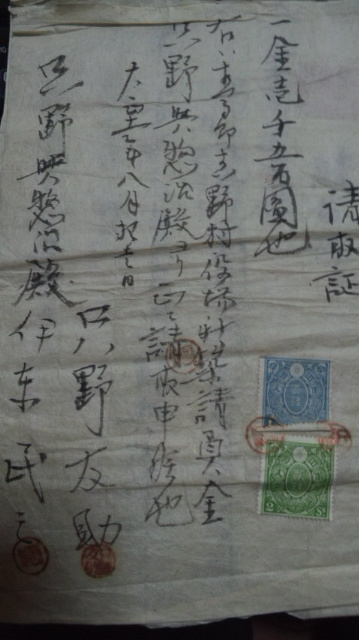 請取証
一金壱千五百圓也
野村役場新築請負金
只野與惣治殿ヨリ正ニ請取申候也
大正 年八月 日
只野友助
伊東民
只野與惣治殿